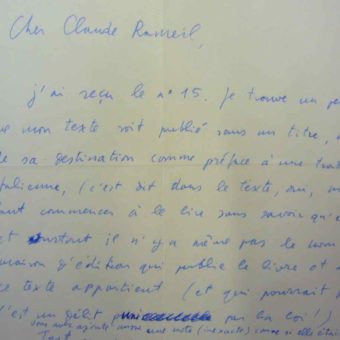 Cher Claude Rameil,
j'ai reçu le n° 15. Je trouve un pe
que mon texte soit publié sans un titre,
de sa destination comme préface à une trad
italienne, (c'est dit dans le texte, oui,
faut commencer à le lire sans savoir qu'
et surtout il n'y a même pas le nom
maison d'édition qui publie le livre et
ce texte appartient (et qui pourrait
c'est un délit par la loi!)
vous avez ajouté une note (inexacte) comme si elle était